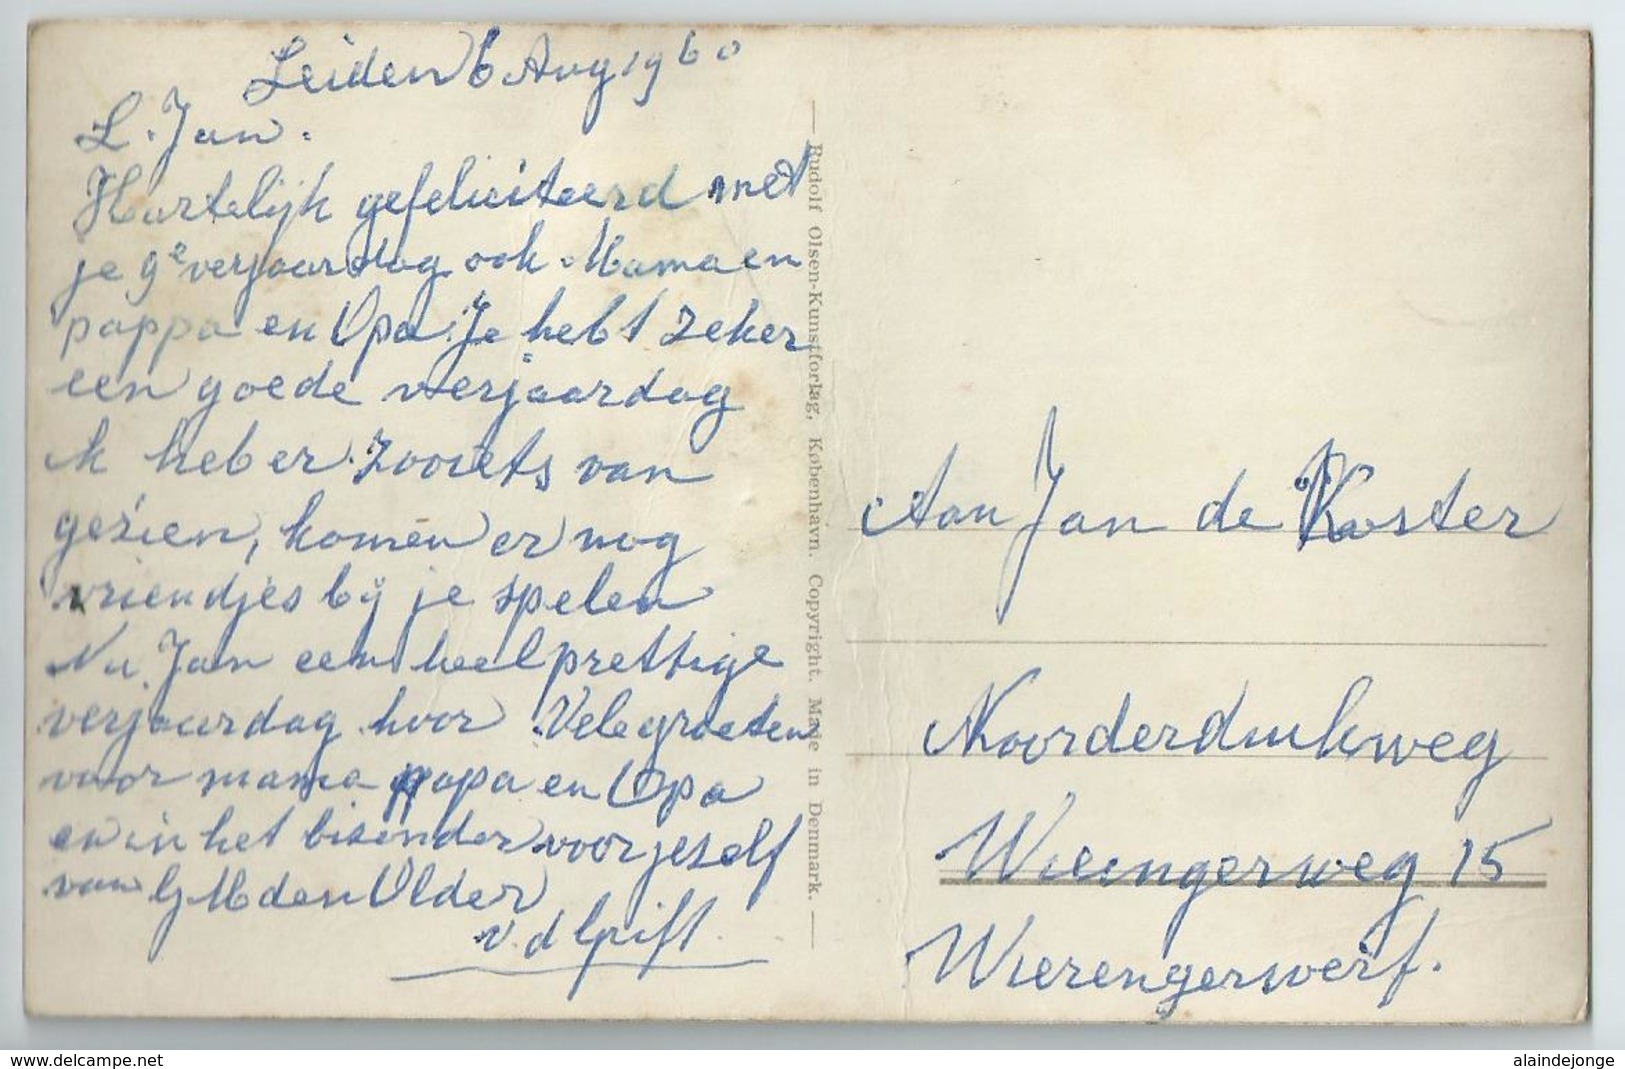 Leiden 6 Aug 1960
L. Jan.
Hartelijk gefeliciteerd met
je 9e verjaardag ook Mama en
pappa en Opa. Je hebt zeker
een goede verjaardag
ik heb er zooiets van
gezien, komen er nog
vriendjes bij je spelen
Nu Jan een heel prettige
verjaardag hoor Vele groeten
voor mama papa en Opa
en in het bizonder voor jezelf
van G M den Older
v. d
— Rudolf Olsen-Kunstforlag, København. Copyright. Made in Denmark. —
Aan Jan de Koster
Noorderduikweg
Wieringerweg 15
Wierengerwerf.
www.delcampe.net
alaindejonge